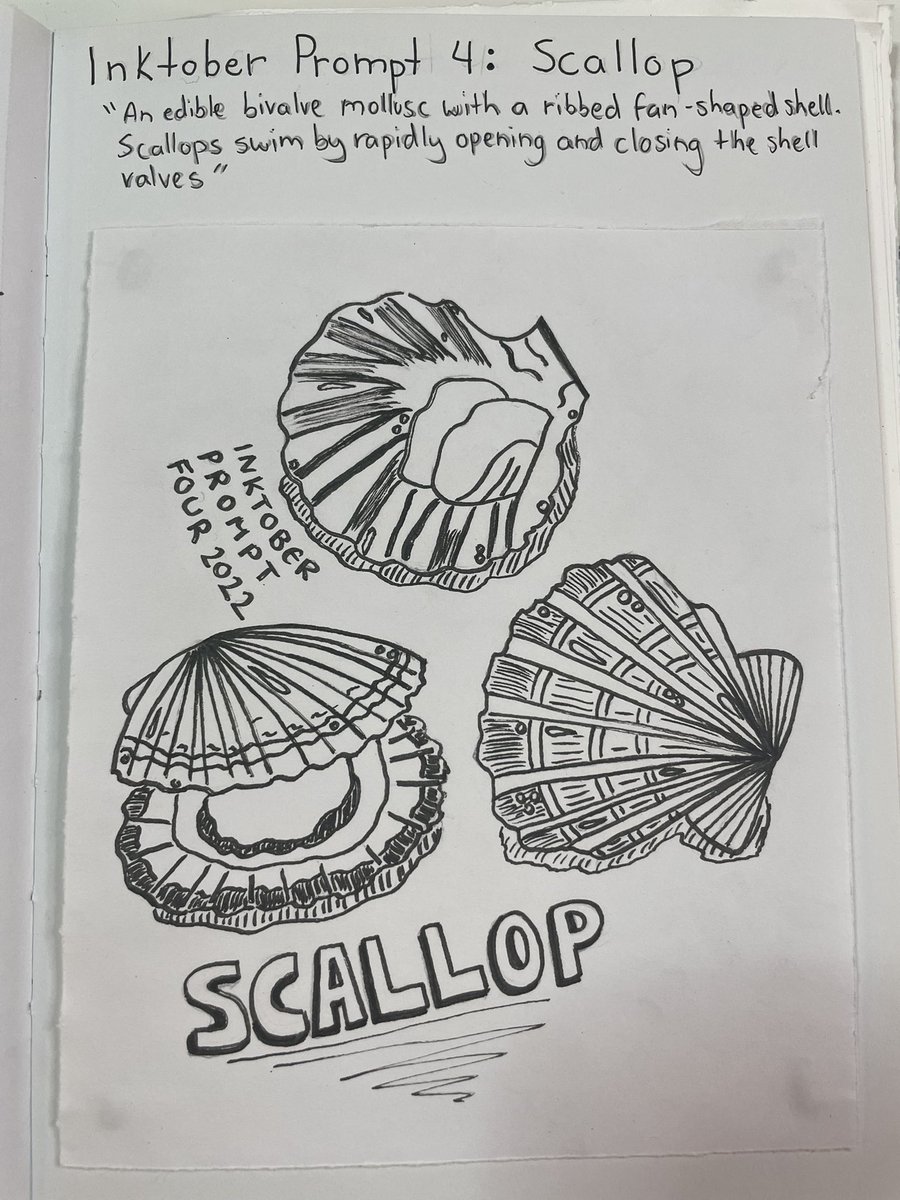 Inktober Prompt 4: Scallop
"An edible bivalve mollusc with a ribbed fan-shaped shell.
Scallops swim by rapidly opening and closing the shell
valves"
INKTOBER
PROMPT
FOUR 2022
SCALLOP